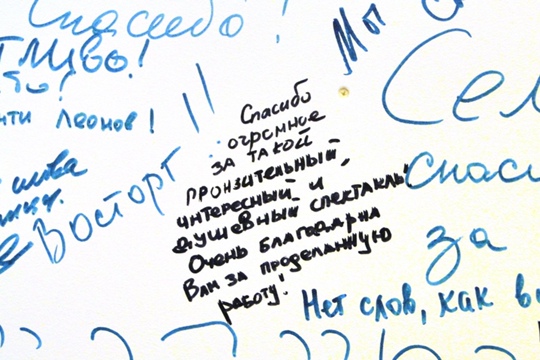 Спасибо!
Мы
Леонов!
Восторг!!
Спасибо
огромное
за такой
пронзительный,
интересный и
душевный спектакль!
Очень благодарна
Вам за проделанную
работу!
Спаси
за
Нет слов, как